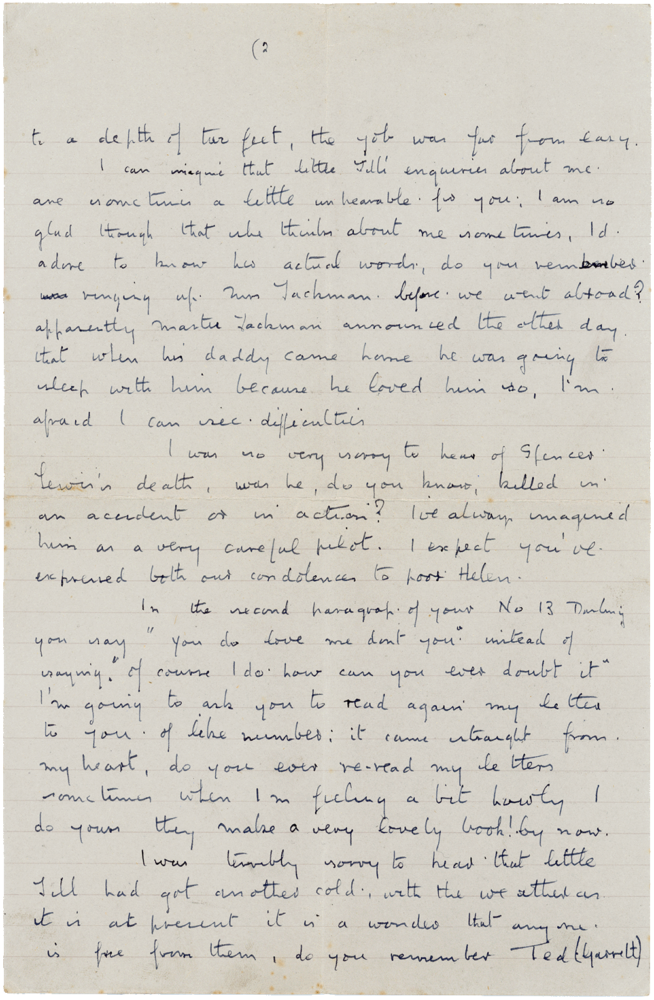 (2
to a depth of two feet, the job was far from easy.
I can imagine that little Jill's enquiries about me.
are sometimes a little unbearable. for you; I am so
glad though that she thinks about me sometimes, I'd.
adore to know her actual words, do you remember.
ringing up. Mrs Jackman. before we went abroad?
apparently master Jackman announced the other day.
that when his daddy came home he was going to
sleep with him because he loved him so, I'm.
afraid I can see. difficulties
I was so very sorry to hear of Spencer.
Lewis's death, was he, do you know, killed in
an accident or in action? I've always imagined
him as a very careful pilot. I expect you've.
expressed both our condolences to poor Helen.
In the second paragrap. of your No 13 Darling
you say " you do love me dont you" instead of
saying." of course I do. how can you ever doubt it"
I'm going to ask you to read again my letter
to you. of like number; it came straight from.
my heart, do you ever re-read my letters
sometimes when I'm feeling a bit I
do yours they make a very lovely book! by now.
I was terribly sorry to hear that little
Jill had got another cold., with the weather as
it is at present it is a wonder that anyone.
is free from them, do you remember Ted (Garrett)